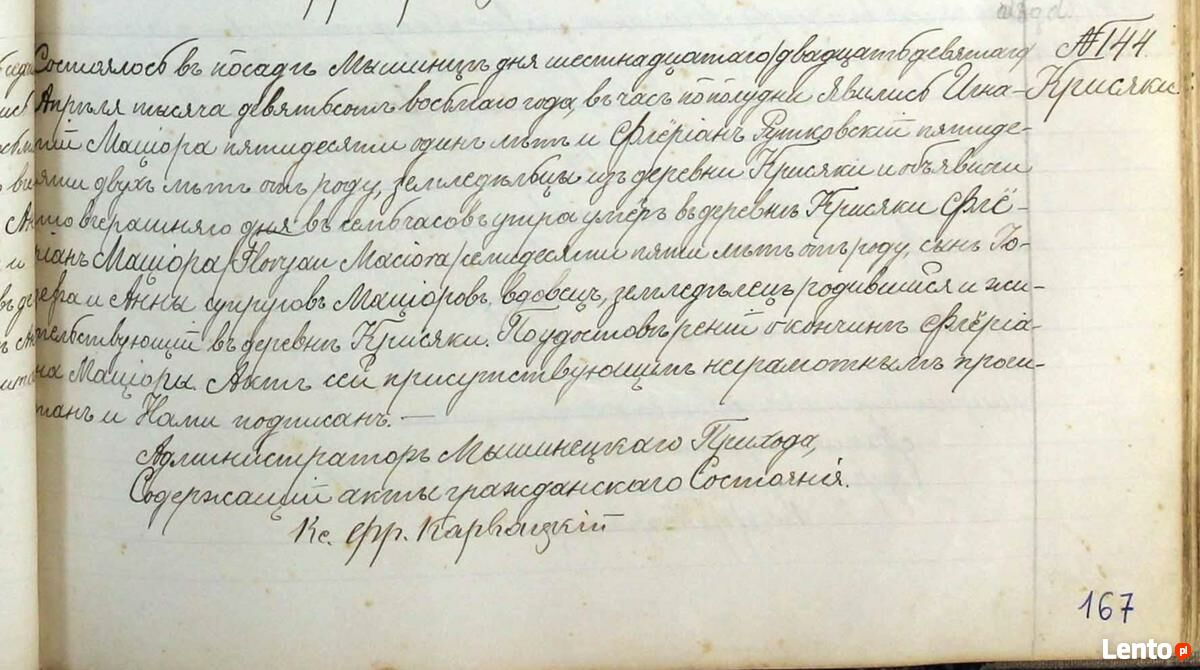 № 144.
Крисяки
Состоялось въ посадѣ Мышинцѣ дня шестнадцатаго/двадцатьдевятаго
Апрѣля тысяча девятьсотъ восьмаго года, въ часъ пополудни Явились Игна-
тій Маціора пятидесяти одинъ лѣтъ и Флёріанъ Рутковскій пятиде-
яти двухъ лѣтъ отъ роду, земледѣльцы изъ деревни Крисяки и объявили
что вчерашняго дня въ семь часовъ утра умёръ въ деревнѣ Крисяки Флё-
ріанъ Маціора /Floryan Maciora/ семидесяти пяти лѣтъ отъ роду, сынъ Іо-
зефа и Анны супруговъ Маціоровъ, вдовецъ, земледѣлецъ родившійся и жи-
тельствующій въ деревнѣ Крисяки. По удостовѣреній о кончинѣ Флёріа-
на Маціоры. Актъ сей присутствующимъ неграмотнымъ прочи-
танъ и Нами подписанъ. —
Администраторъ Мышинецкаго Прихода,
Содержащій акты гражданскаго Состоянія.
Кс. Фр. Карвацкій
167
Lento.pl